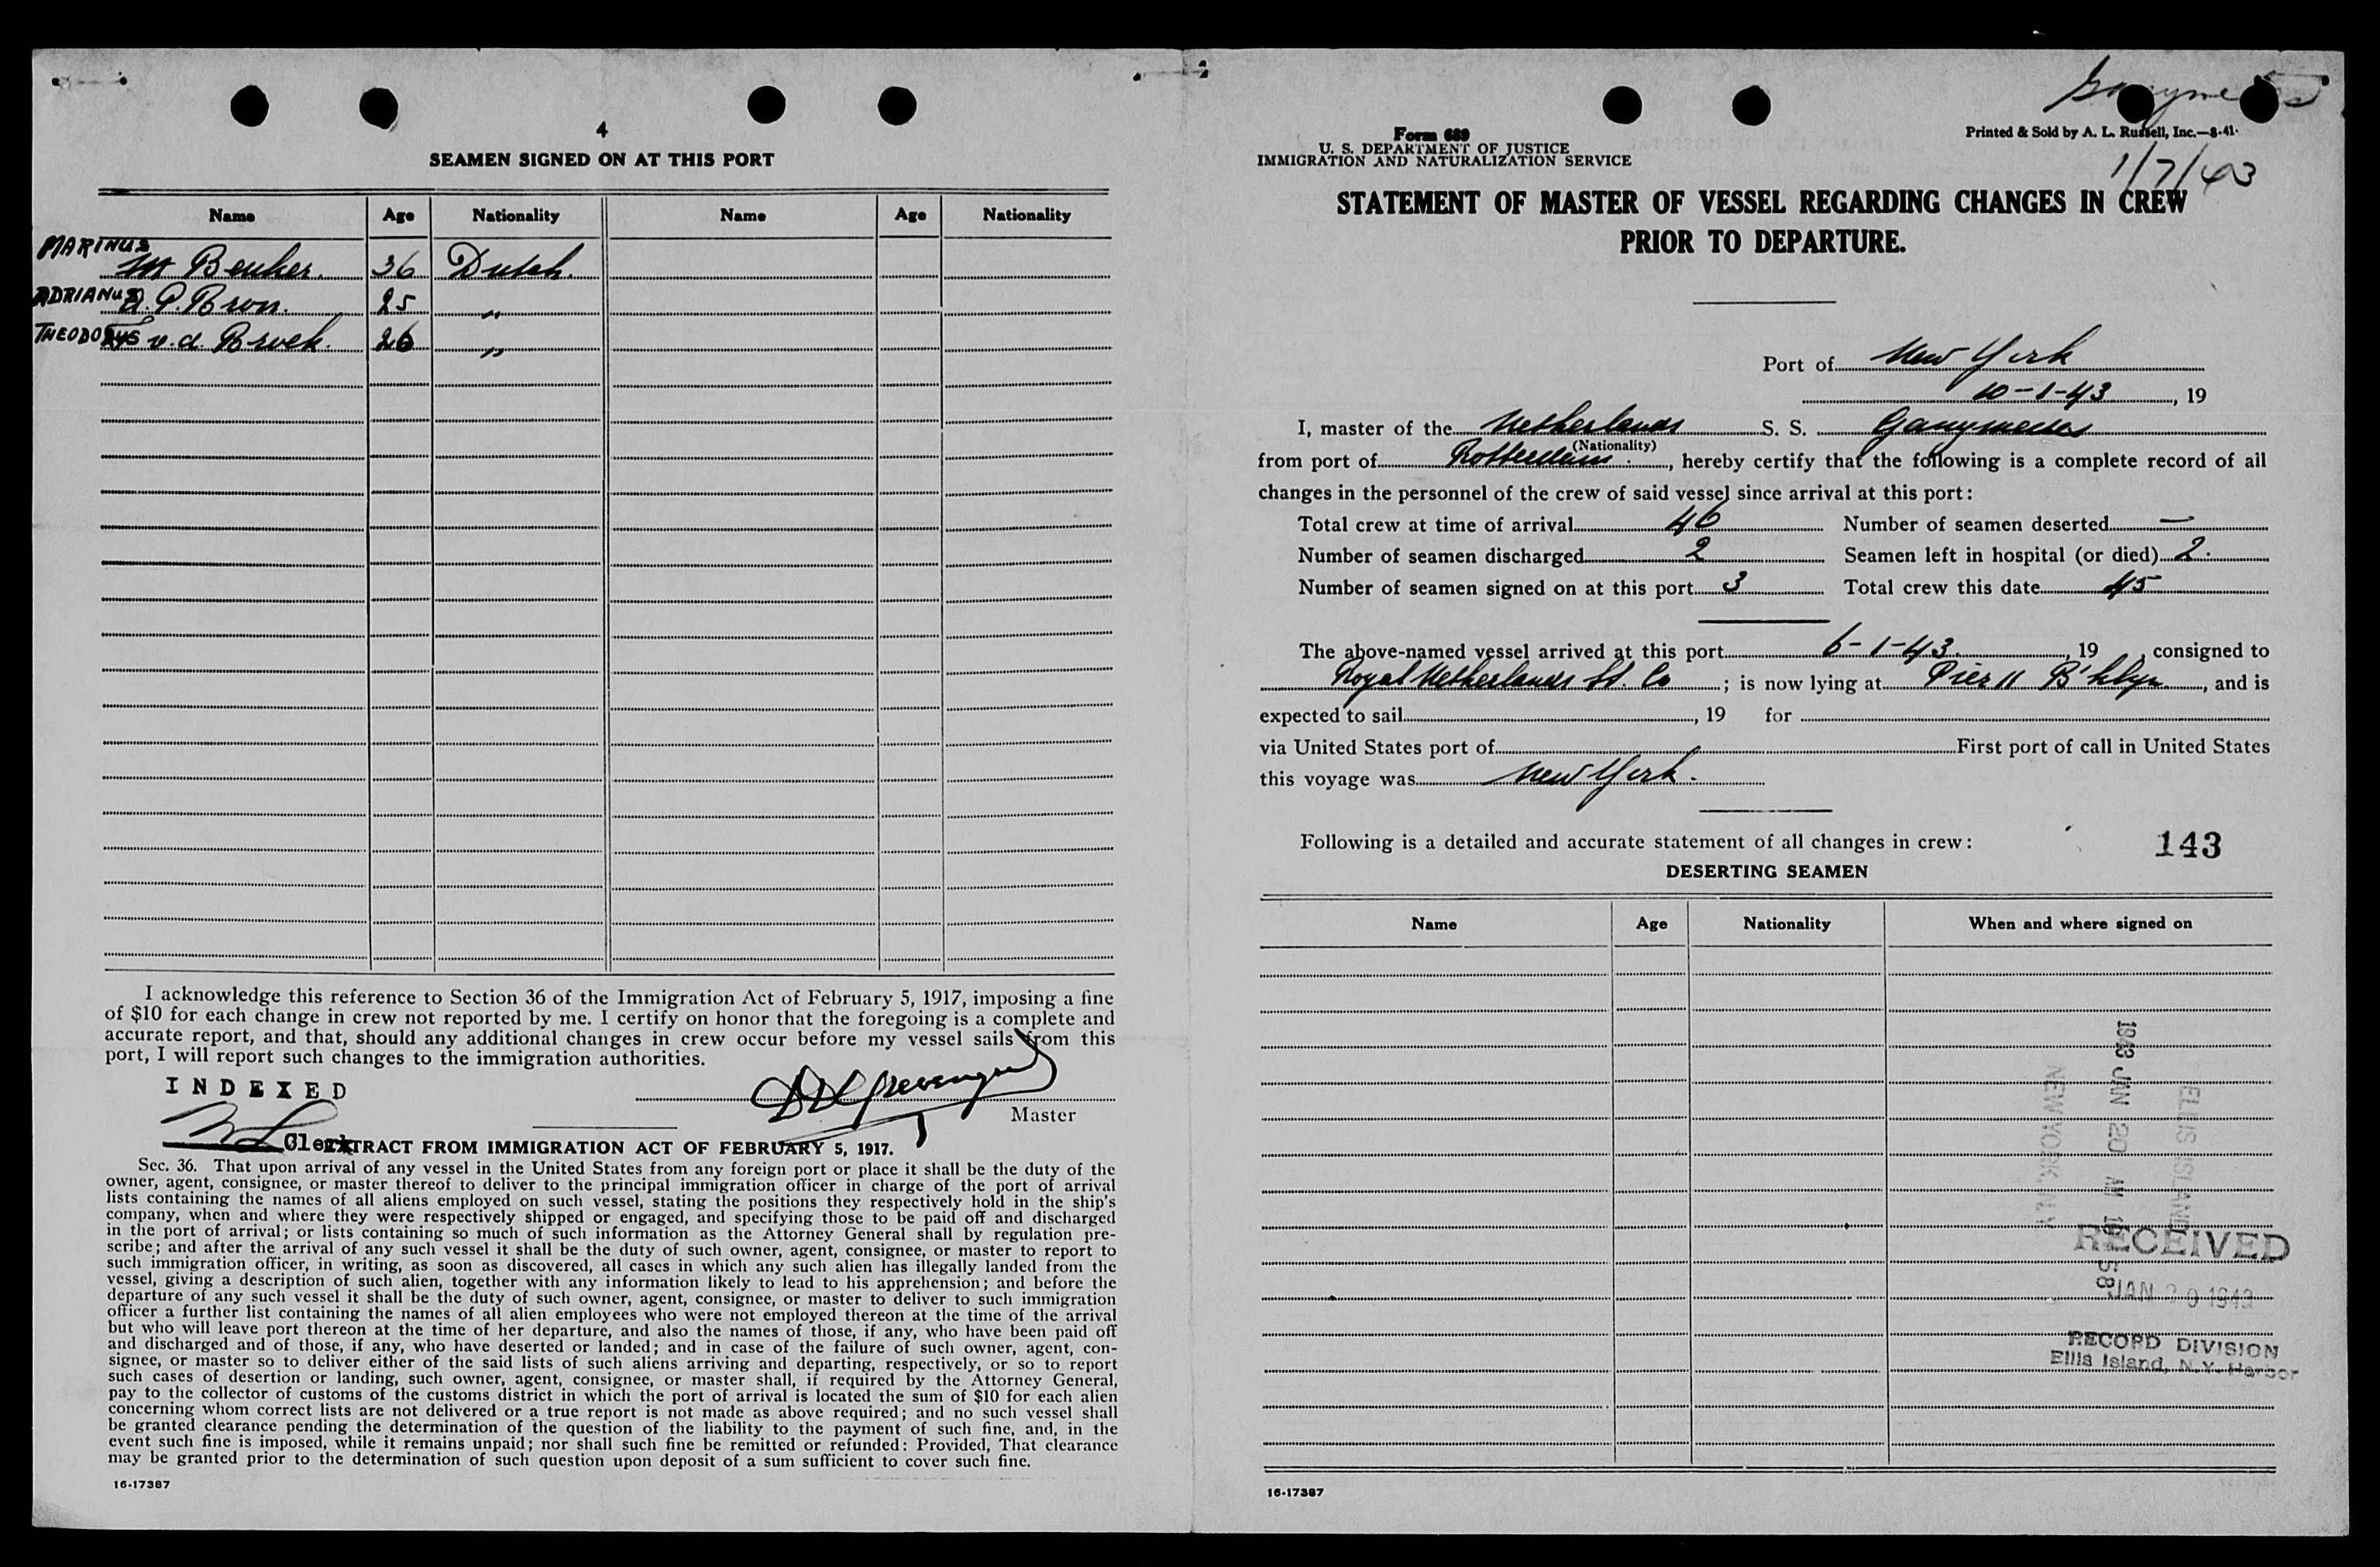 4
SEAMEN SIGNED ON AT THIS PORT
Name Age Nationality Name Age Nationality
MARINUS
M Beuker. 36 Dutch.
ADRIANUS A. P. Bron. 25 "
THEODORUS v.d. Broek. 26 "
I acknowledge this reference to Section 36 of the Immigration Act of February 5, 1917, imposing a fine
of $10 for each change in crew not reported by me. I certify on honor that the foregoing is a complete and
accurate report, and that, should any additional changes in crew occur before my vessel sails from this
port, I will report such changes to the immigration authorities.
INDEXED
Master
Clerk
EXTRACT FROM IMMIGRATION ACT OF FEBRUARY 5, 1917.
Sec. 36. That upon arrival of any vessel in the United States from any foreign port or place it shall be the duty of the
owner, agent, consignee, or master thereof to deliver to the principal immigration officer in charge of the port of arrival
lists containing the names of all aliens employed on such vessel, stating the positions they respectively hold in the ship's
company, when and where they were respectively shipped or engaged, and specifying those to be paid off and discharged
in the port of arrival; or lists containing so much of such information as the Attorney General shall by regulation pre-
scribe; and after the arrival of any such vessel it shall be the duty of such owner, agent, consignee, or master to report to
such immigration officer, in writing, as soon as discovered, all cases in which any such alien has illegally landed from the
vessel, giving a description of such alien, together with any information likely to lead to his apprehension; and before the
departure of any such vessel it shall be the duty of such owner, agent, consignee, or master to deliver to such immigration
officer a further list containing the names of all alien employees who were not employed thereon at the time of the arrival
but who will leave port thereon at the time of her departure, and also the names of those, if any, who have been paid off
and discharged and of those, if any, who have deserted or landed; and in case of the failure of such owner, agent, con-
signee, or master so to deliver either of the said lists of such aliens arriving and departing, respectively, or so to report
such cases of desertion or landing, such owner, agent, consignee, or master shall, if required by the Attorney General,
pay to the collector of customs of the customs district in which the port of arrival is located the sum of $10 for each alien
concerning whom correct lists are not delivered or a true report is not made as above required; and no such vessel shall
be granted clearance pending the determination of the question of the liability to the payment of such fine, and, in the
event such fine is imposed, while it remains unpaid; nor shall such fine be remitted or refunded: Provided, That clearance
may be granted prior to the determination of such question upon deposit of a sum sufficient to cover such fine.
16-17387
Ganymedes
Form 689
U. S. DEPARTMENT OF JUSTICE
IMMIGRATION AND NATURALIZATION SERVICE
Printed & Sold by A. L. Russell, Inc.—8-41.
1/7/43
STATEMENT OF MASTER OF VESSEL REGARDING CHANGES IN CREW
PRIOR TO DEPARTURE.
Port of New York
10-1-43, 19
I, master of the Netherlands S. S. Ganymedes
(Nationality)
from port of Rotterdam., hereby certify that the following is a complete record of all
changes in the personnel of the crew of said vessel since arrival at this port:
Total crew at time of arrival 46 Number of seamen deserted —
Number of seamen discharged 2 Seamen left in hospital (or died) 2.
Number of seamen signed on at this port 3 Total crew this date 45
The above-named vessel arrived at this port 6-1-43., 19 , consigned to
Royal Netherlands St. Co; is now lying at Pier 11 B'klyn, and is
expected to sail , 19 for
via United States port of First port of call in United States
this voyage was New York.
Following is a detailed and accurate statement of all changes in crew:
143
DESERTING SEAMEN
Name Age Nationality When and where signed on
1943 JAN 20 AM 10 58
ELLIS ISLAND
NEW YORK, N.Y.
RECEIVED
JAN 20 1943
RECORD DIVISION
Ellis Island, N.Y. Harbor
16-17387